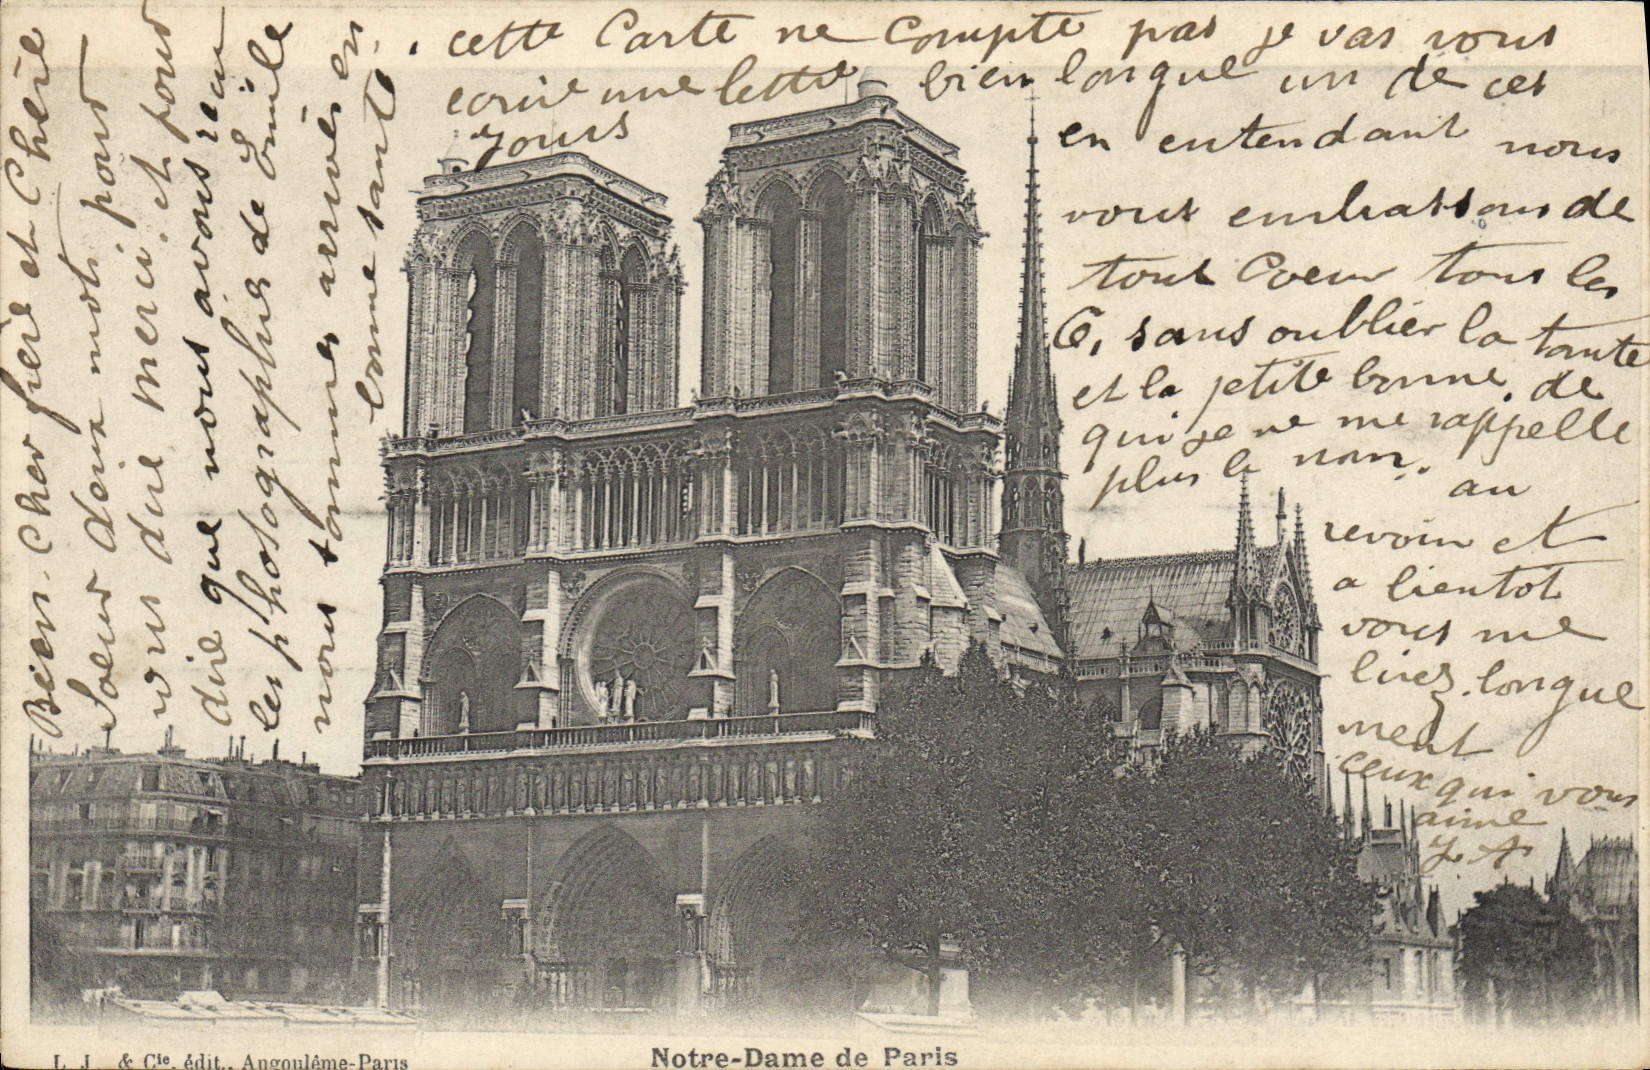 Bien cher frère et chère
Soeur deux mots pour
vous dire merci. et pour
dire que nous avons reçu
les photographies de Emile
nous sommes arrivés en
bonne santé.
cette Carte ne Compte pas je vas vous
ecrire une lettre bien longue un de ces
jours
en entendant nous
vous embrassons de
tout Coeur tous les
6, sans oublier la tante
et la petite bonne. de
qui je ne me rappelle
plus le nom. au
revoir et
a bientôt
vous me
lirez longue
ment
ceux qui vous
aime
L. J. & Cie. édit., Angoulême-Paris
Notre-Dame de Paris